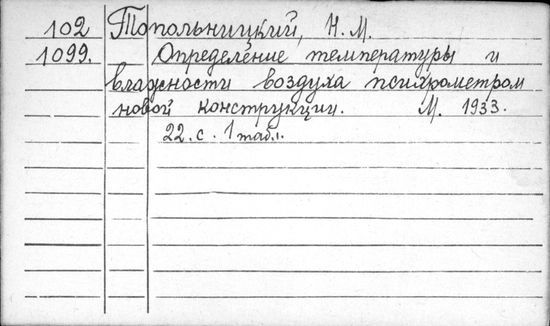 102 Топольницкий, Н. М.
1099. Определение температуры и
влажности воздуха психрометром
новой конструкции. М. 1933.
22. с. 1 табл.